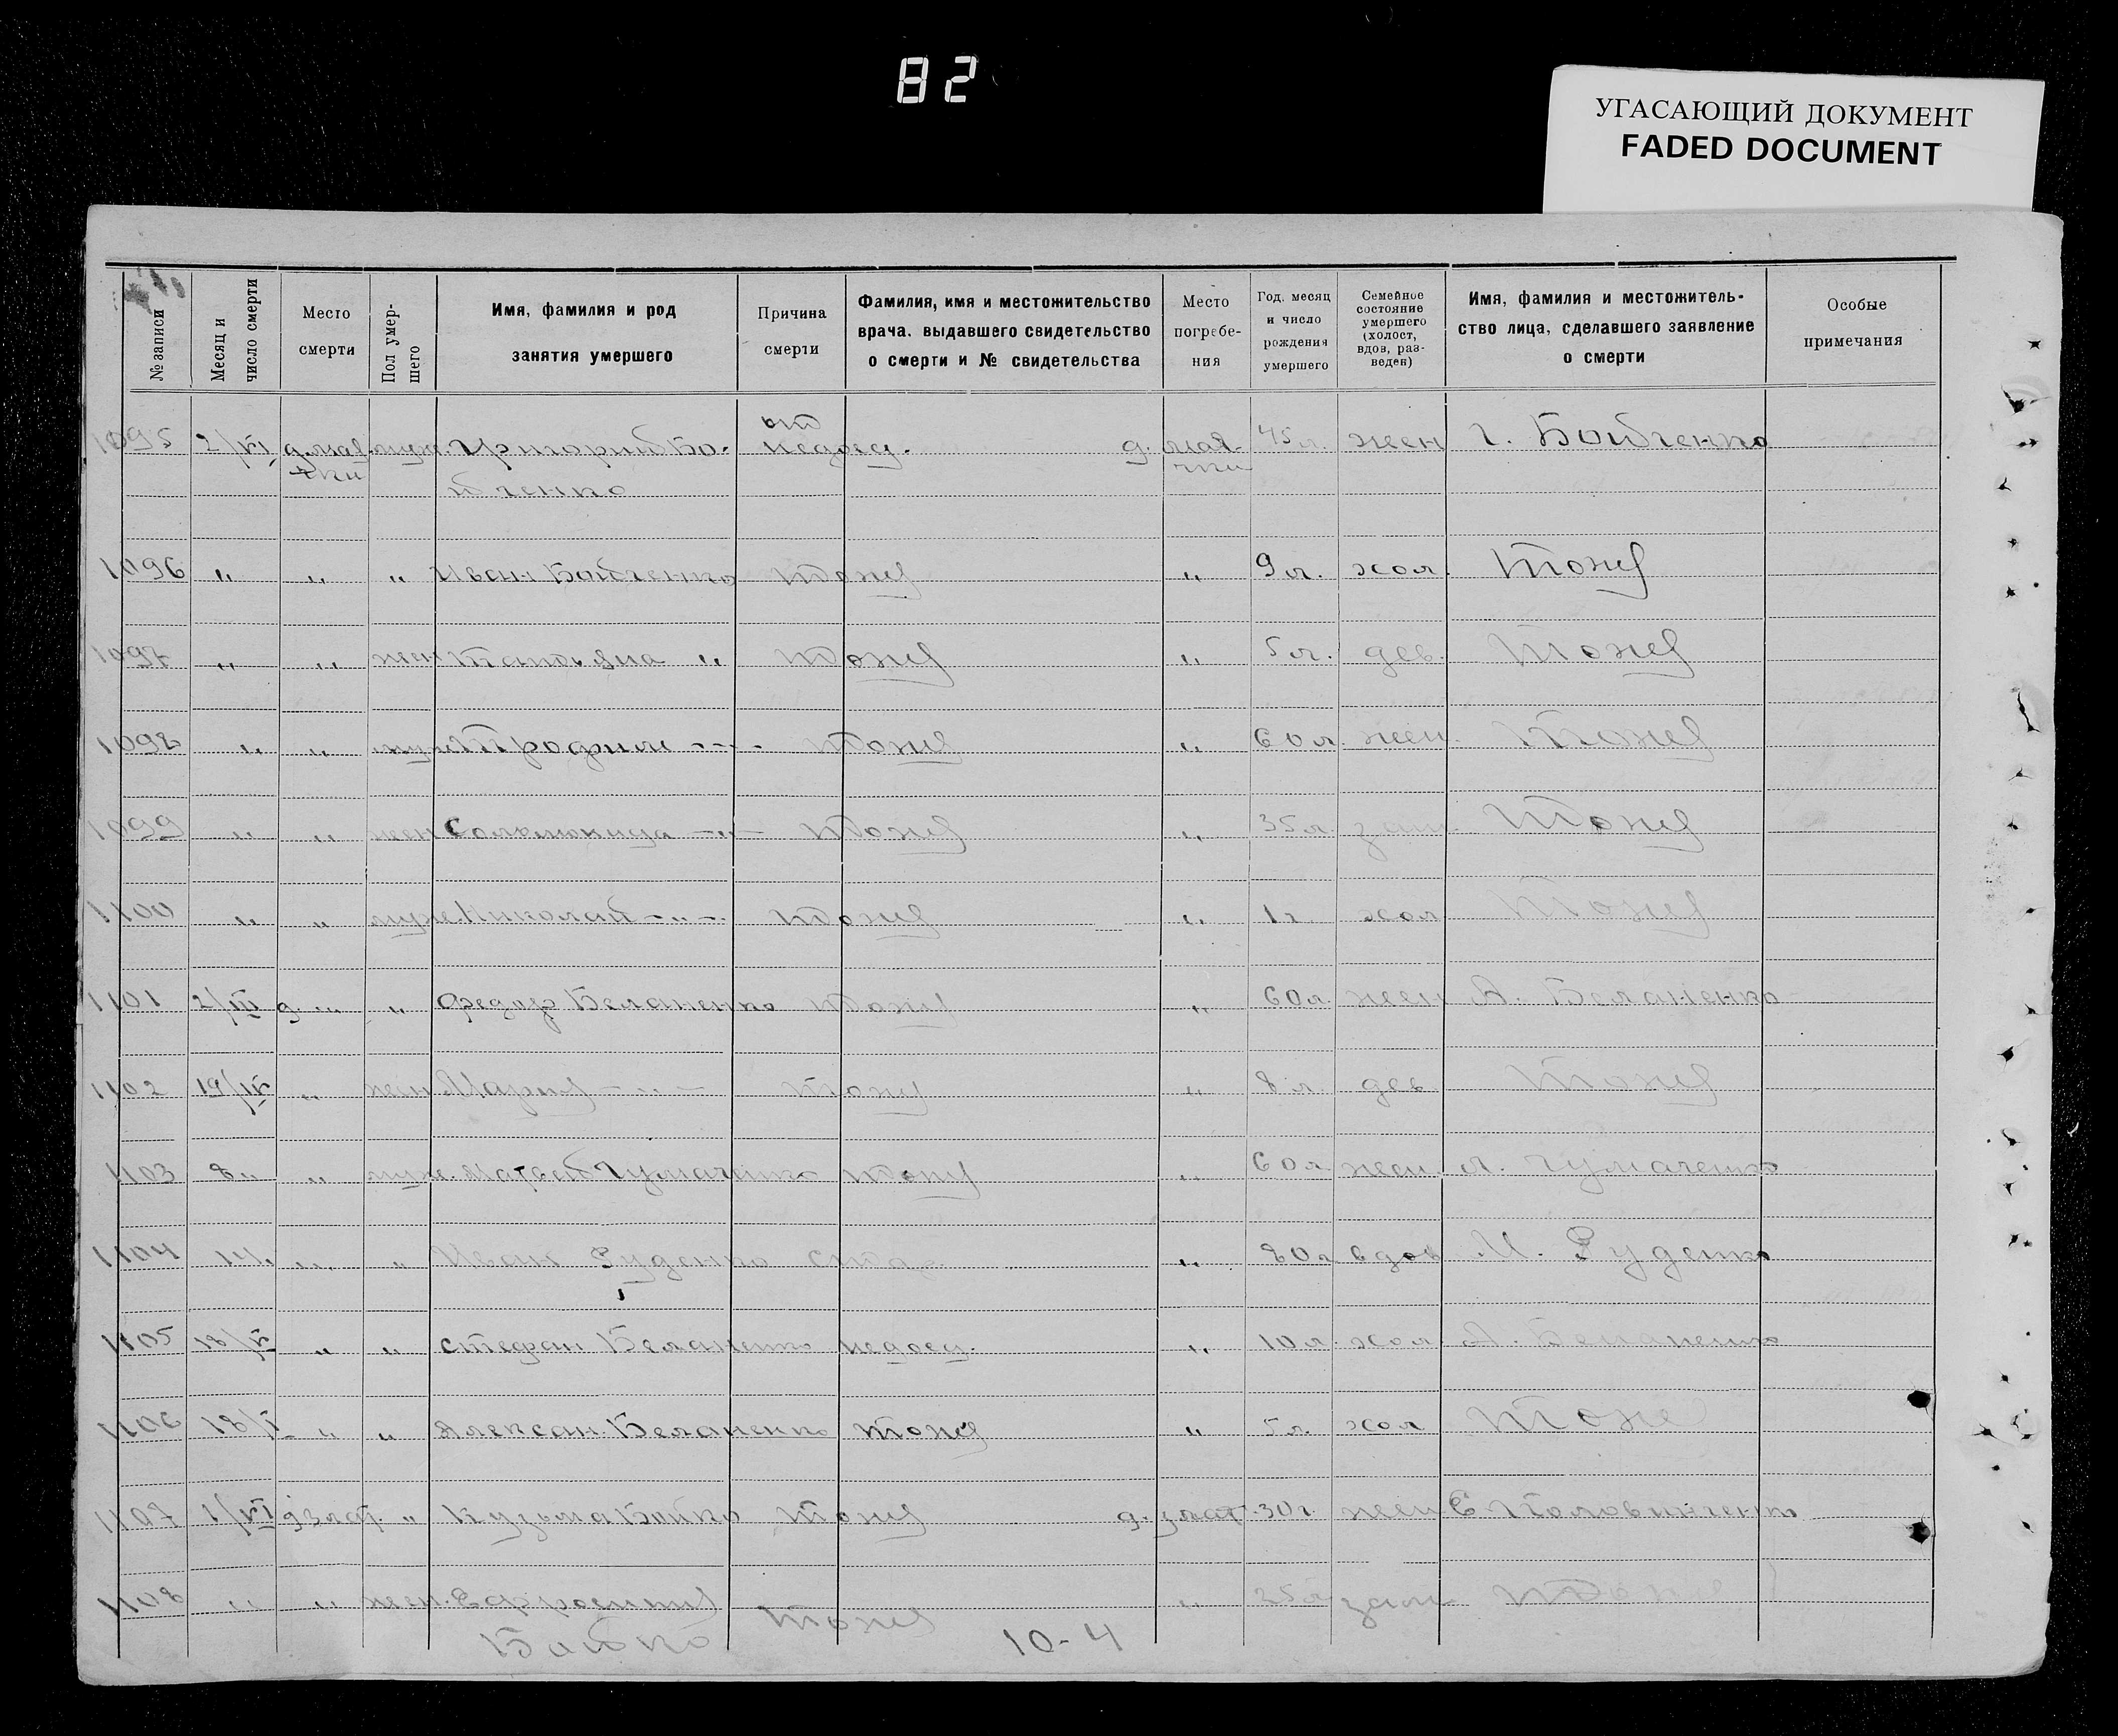 82
УГАСАЮЩИЙ ДОКУМЕНТ
FADED DOCUMENT
№ записи
Месяц и число смерти
Место смерти
Пол умер-шего
Имя, фамилия и род занятия умершего
Причина смерти
Фамилия, имя и местожительство врача. выдавшего свидетельство о смерти и № свидетельства
Место погребе-ния
Год, месяц и число рождения умершего
Семейное состояние умершего (холост, вдов, раз-веден)
Имя, фамилия и местожитель-ство лица, сделавшего заявление о смерти
Особые примечания
1095 2/VI д. мая- муж Григорий Бо- от недоед. д. мая- 45 л. жен Г. Бойченко
чки йченко чки
1096 " " " Иван Бойченко тоже " 9 л. хол. тоже
1097 " " жен " тоже " 5 л. дев. тоже
1098 " " муж Трофим -"- тоже " 60 л. жен. тоже
1099 " " жен -"- тоже " 35 л. зам. тоже
1100 " " муж. Николай -"- тоже " 1 г хол тоже
1101 2/III д. " " Федор Беланенко тоже " 60 л. жен А. Беланенко
1102 19/IV " жен Мария -"- тоже " 8 л. дев тоже
1103 8 " " муж. Матвей Чумаченко тоже " 60 л. жен. А. Чумаченко
1104 14 " " " Иван Руденко стар. " 80 л вдов М. Руденко
1105 18/V " " Стефан Беланенко недоед. " 10 л. хол. А. Беланенко
1106 18/V " " Алексан. Беланенко тоже " 5 л. хол тоже
1107 1/VI д. злат. " Кузьма Бойко тоже д. злат. 30 г. жен Е. Половинченко
1108 " " жен. тоже " 25 л зам тоже
Бойко 10-4